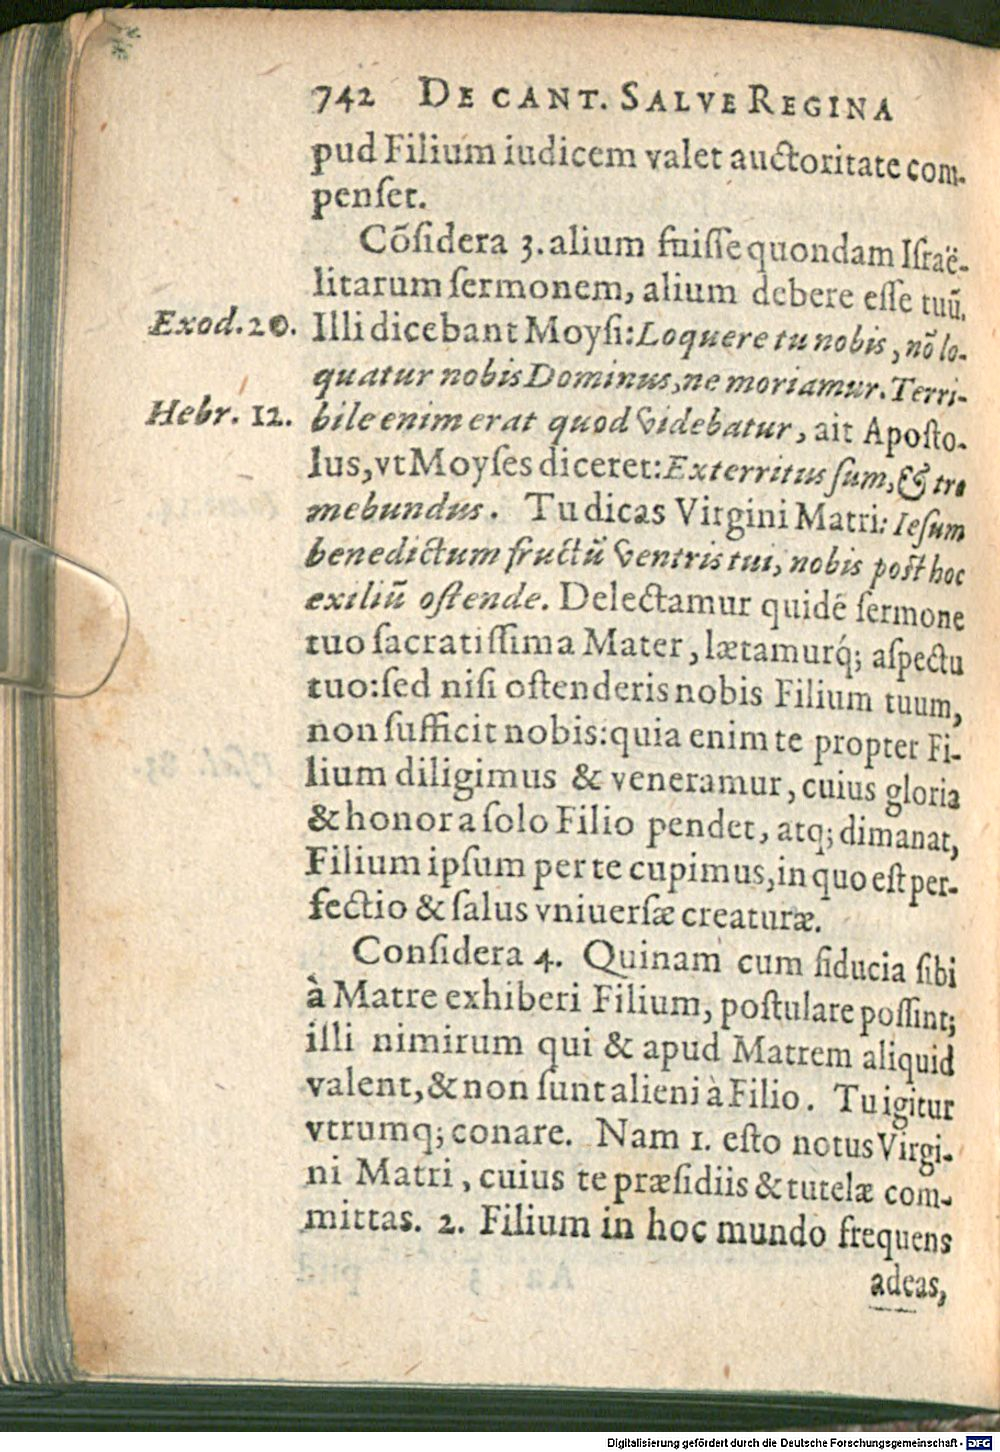 742 DE CANT. SALVE REGINA
pud Filium iudicem valet auctoritate com-
penſet.
Cõſidera 3. alium fuiſſe quondam Iſraë-
litarum ſermonem, alium debere eſſe tuũ.
Exod. 20. Illi dicebant Moyſi: Loquere tu nobis, nõ lo-
quatur nobis Dominus, ne moriamur. Terri-
Hebr. 12. bile enim erat quod videbatur, ait Apoſto-
lus, vt Moyſes diceret: Exterritus ſum, & tre
mebundus. Tu dicas Virgini Matri: Ieſum
benedictum fructũ ventris tui, nobis poſt hoc
exiliũ oſtende. Delectamur quidẽ ſermone
tuo ſacratiſſima Mater, lætamurq́; aſpectu
tuo: ſed niſi oſtenderis nobis Filium tuum,
non ſufficit nobis: quia enim te propter Fi-
lium diligimus & veneramur, cuius gloria
& honor a ſolo Filio pendet, atq; dimanat,
Filium ipſum per te cupimus, in quo eſt per-
fectio & ſalus vniuerſæ creaturæ.
Conſidera 4. Quinam cum fiducia ſibi
à Matre exhiberi Filium, poſtulare poſſint;
illi nimirum qui & apud Matrem aliquid
valent, & non ſunt alieni à Filio. Tu igitur
vtrumq; conare. Nam 1. eſto notus Virgi-
ni Matri, cuius te præſidiis & tutelæ com-
mittas. 2. Filium in hoc mundo frequens
adeas,
Digitalisierung gefördert durch die Deutsche Forschungsgemeinschaft - DFG